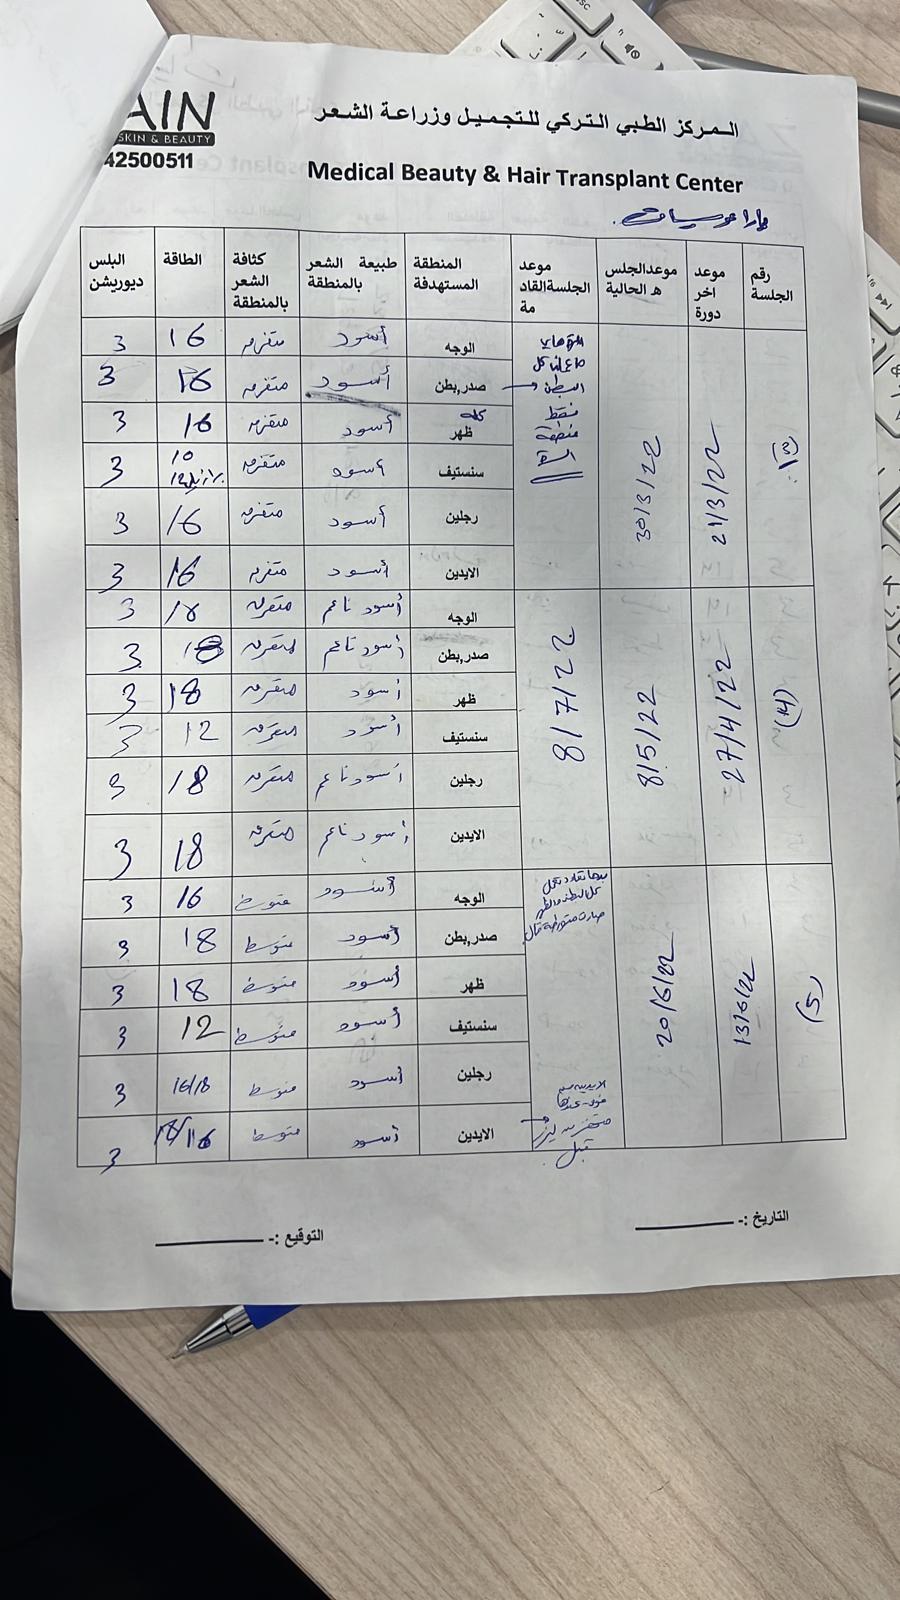 AIN
SKIN & BEAUTY
42500511
المركز الطبي التركي للتجميل وزراعة الشعر
Medical Beauty & Hair Transplant Center
يارا عويسات
رقم الجلسة | موعد اخر دورة | موعدالجلس ه الحالية | موعد الجلسةالقاد مة | المنطقة المستهدفة | طبيعة الشعر بالمنطقة | كثافة الشعر بالمنطقة | الطاقة | البلس ديوريشن
(3) | 21/3/22 | 30/3/22
كل البطن
فقط
منطقة
السرة
الوجه | أسود | متفرقه | 16 | 3
صدر,بطن | أسود | متفرقه | 16 | 3
ظهر كله | أسود | متفرقه | 16 | 3
سنستيف | أسود | متفرقه | 10 | 3
رجلين | أسود | متفرقه | 16 | 3
الايدين | أسود | متفرقه | 16 | 3
(14) | 27/4/22 | 8/5/22 | 8/7/22
الوجه | أسود ناعم | متفرقه | 18 | 3
صدر,بطن | أسود ناعم | متفرقه | 18 | 3
ظهر | أسود | متفرقه | 18 | 3
سنستيف | أسود | متفرقه | 12 | 3
رجلين | أسود ناعم | متفرقه | 18 | 3
الايدين | أسود ناعم | متفرقه | 18 | 3
(5) | 13/6/22 | 20/6/22
كل البطن والظهر
الوجه | أسود | متوسط | 16 | 3
صدر,بطن | أسود | متوسط | 18 | 3
ظهر | أسود | متوسط | 18 | 3
سنستيف | أسود | متوسط | 12 | 3
رجلين | أسود | متوسط | 16/18 | 3
الايدين | أسود | متوسط | 18/16 | 3
قبل
التاريخ :-
التوقيع :-